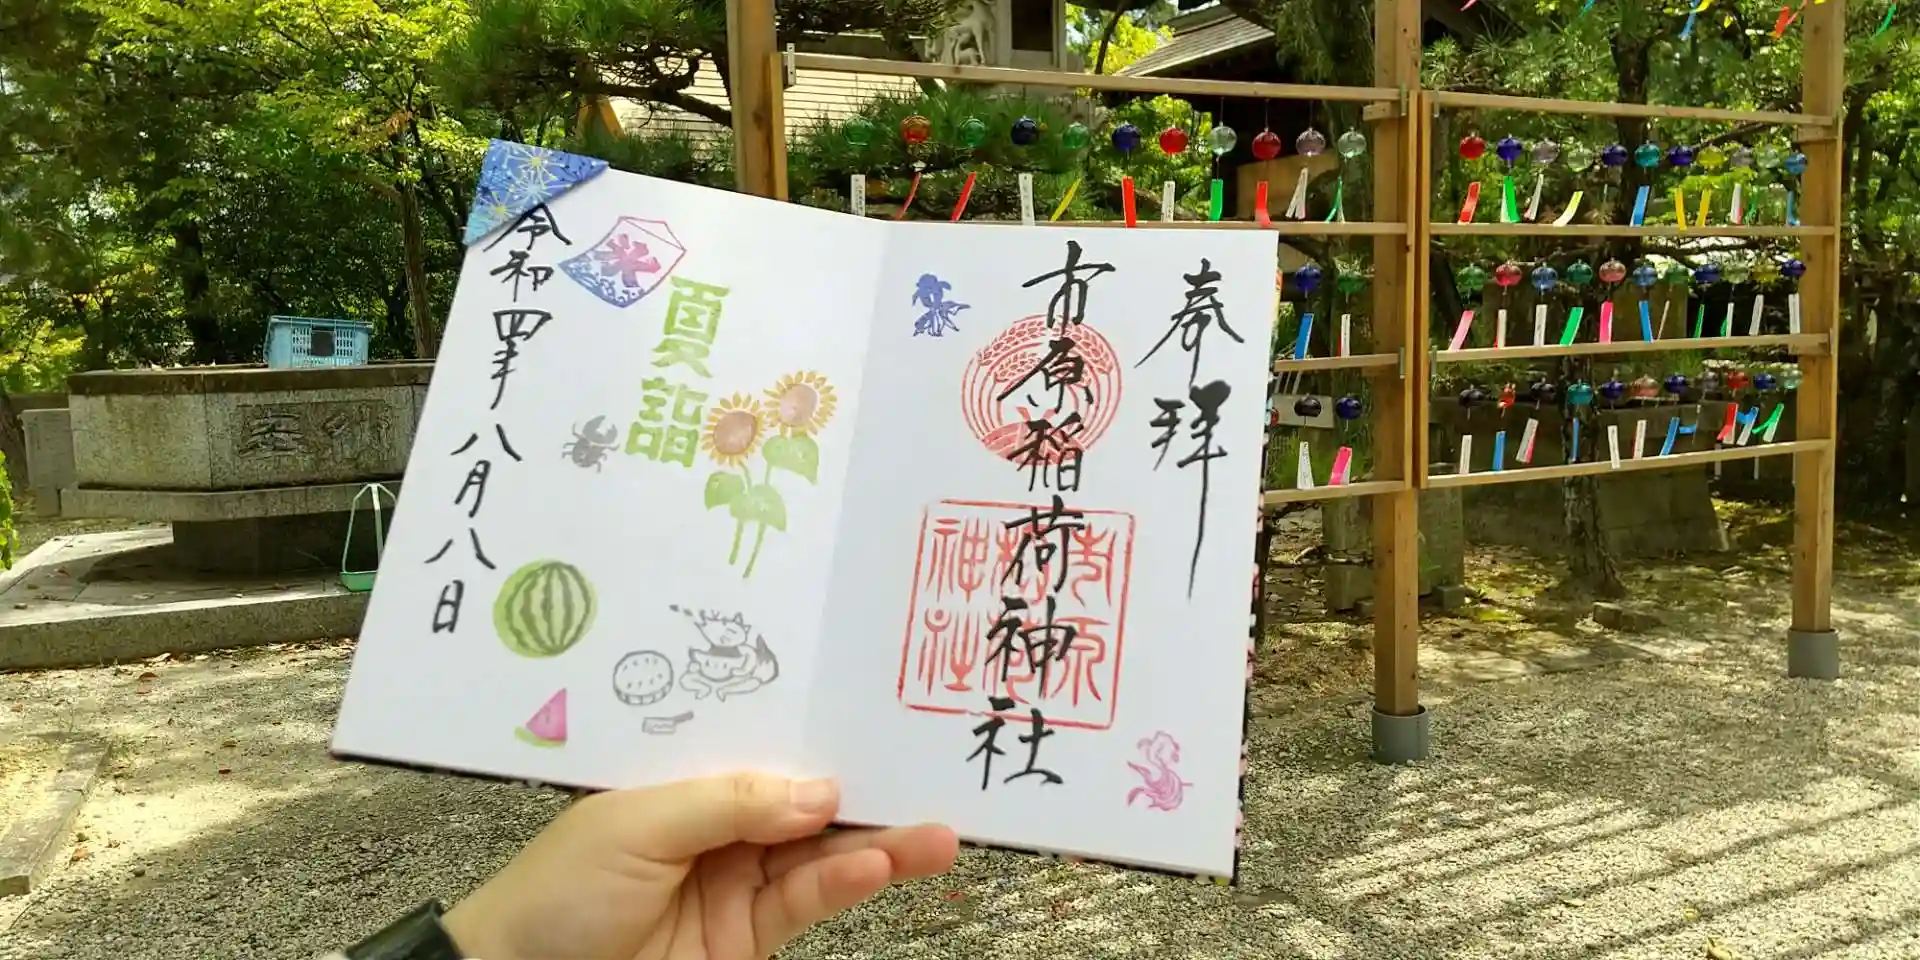 奉拝
市原稲荷神社
市原稲荷神社
夏詣
氷
令和四年八月八日
奉納